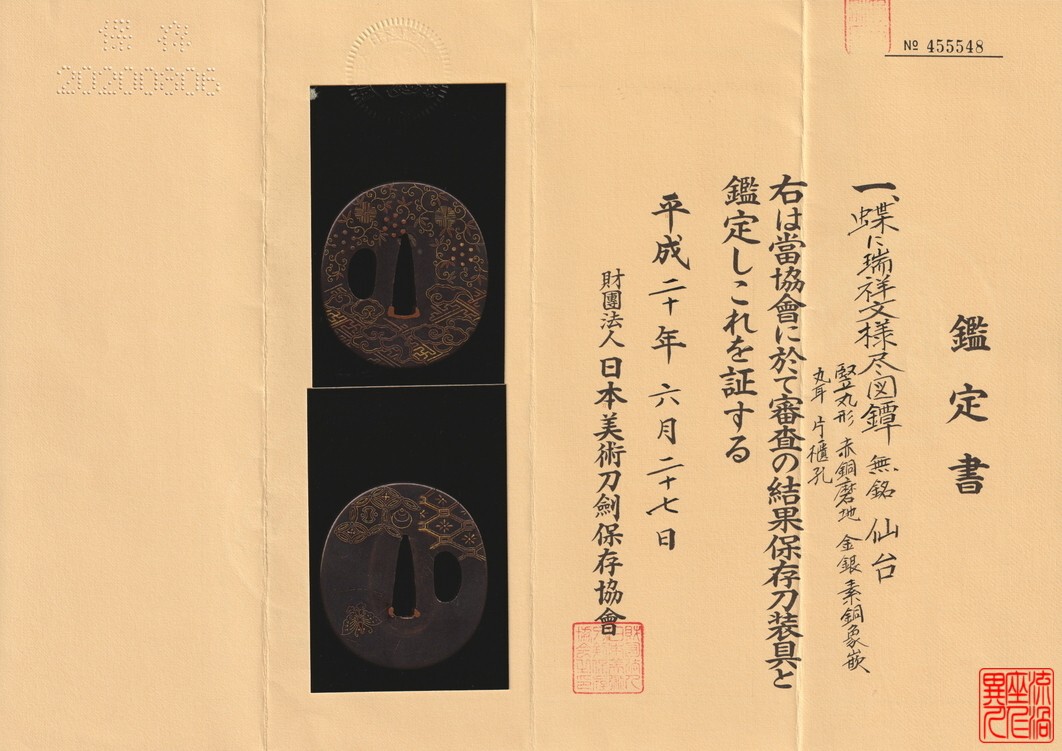 № 455548
鑑定書
一、蝶に瑞祥文様尽図鐔 無銘 仙台
竪丸形 赤銅磨地 金銀素銅象嵌
丸耳 片櫃孔
右は當協會に於て審査の結果保存刀装具と
鑑定しこれを証する
平成二十年六月二十七日
財團法人日本美術刀劍保存協會
保存
20200806